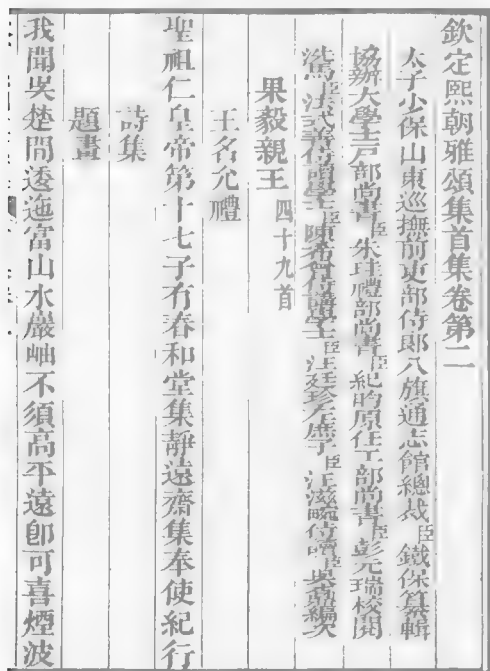 欽定熙朝雅頌集首集卷第二
太子少保山東巡撫前吏部侍郎八旗通志館總裁臣鐵保纂輯
協辦大學士戶部尚書臣朱珪禮部尚書臣紀昀原任工部尚書臣彭元瑞校閱
法式善侍讀學士臣陳希曾侍講學士臣汪廷珍左庶子臣汪滋畹侍讀臣吳鼒編次
果毅親王四十九首
王名允禮
聖祖仁皇帝第十七子有春和堂集靜遠齋集奉使紀行
詩集
題畫
我聞吳楚間逶迤富山水巖岫不須高平遠卽可喜煙波